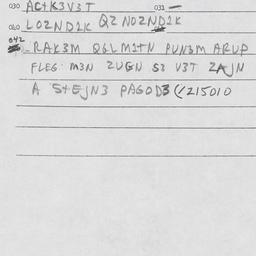 030 ACTK3V3T 031 —
040 LOZND2K QZNOZND2K
042 RAK3M Q6LM2TN PUN3M ARUP
FLEG M3N ZUGN S2 V3T ZAJN
A STEJN3 PAGOD3 (/215010